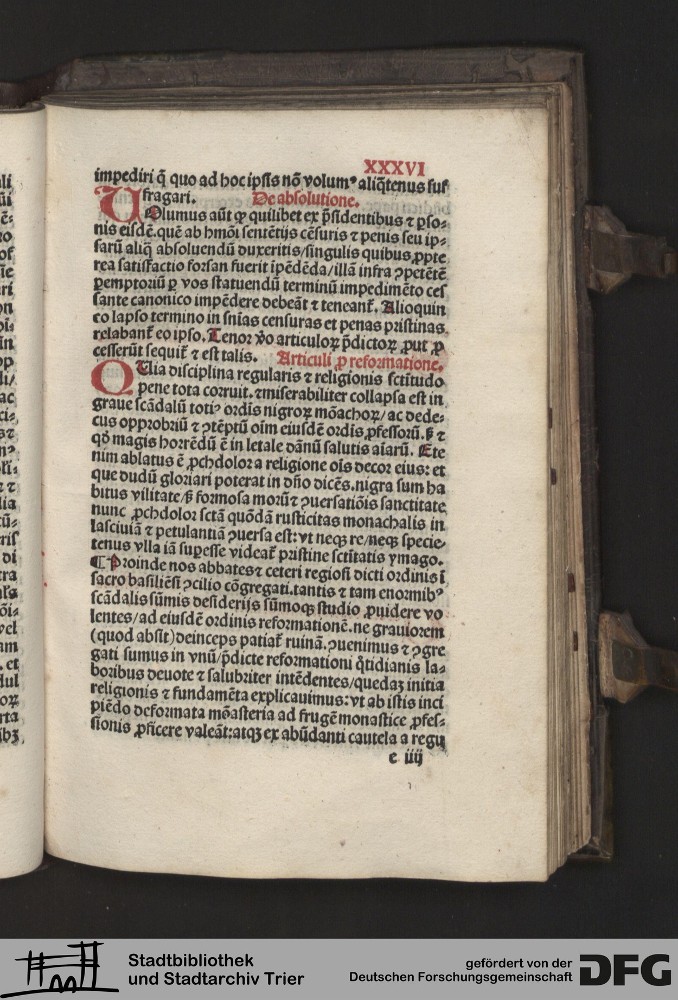 XXXVI
impediri q̄ quo ad hoc ipsis nō volumꝰ aliq̄tenus suf
fragari. De absolutione.
Uolumus aūt ꝙ quilibet ex p̄sidentibus ⁊ ꝑso⸗
nis eisdē.quē ab hm̄oi sentētijs cēsuris ⁊ penis seu ip⸗
sarū aliq̄ absoluendū duxeritis/singulis quibus ꝓpte
rea satisfactio forsan fuerit īpēdēda/illā infra ꝯpetētē
ꝑemptoriū ꝑ vos statuendū terminū impedimēto ces
sante canonico impēdere debeāt ⁊ teneant̄. Alioquin
eo lapso termino in sn̄ias censuras et penas pristinas
relabant̄ eo ipso. Tenor v̊o articuloꝝ p̄dictoꝝ ꝓut ꝓ
cesserūt sequit̄ ⁊ est talis. Articuli ꝓ reformatione.
QUia disciplina regularis ⁊ religionis sctītudo
pene tota corruit. ⁊miserabiliter collapsa est in
graue scādalū totiꝰ ordīs nigroꝝ mōachoꝝ/ac dede⸗
cus opprobriū ⁊ ꝯtēptū oīm eiusdē ordīs ꝓfessorū.ß ⁊
qḋ magis horrēdū ē in letale dānū salutis aīarū. Ete
nim ablatus ē ꝓchdolor a religione oīs decor eius: et
que dudū gloriari poterat in dn̄o dicēs.nigra sum ha
bitus vilitate/ß formosa morū ⁊ ꝯuersatiōis sanctitate
nunc ꝓchdolor sctā quōdā rusticitas monachalis in
lasciuiā ⁊ petulantiā ꝯuersa est: vt neqꝫ re/neqꝫ specie⸗
tenus vlla iā suꝑesse videat̄ pristine sctītatis ymago.
¶ Proinde nos abbates⁊ ceteri regiosi dicti ordinis ī
sacro basiliēsi ꝯcilio cōgregati.tantis ⁊ tam enormibꝰ
scādalis sūmis desiderijs sūmoqꝫ studio ꝓuidere vo
lentes/ad eiusdē ordinis reformationē.ne grauiorem
(quod absit)deinceps patiat̄ ruinā.ꝯuenimus ⁊ ꝯgre
gati sumus in vnū/p̄dicte reformationi q̄tidianis la⸗
boribus deuote ⁊ salubriter intēdentes/quedaꝫ initia
religionis ⁊ fundamēta explicauimus: vt ab istis inci
piēdo deformata mōasteria ad frugē monastice ꝓfes⸗
sionis ꝓficere valeāt:atqꝫ ex abūdanti cautela a regu
e iiij
Stadtbibliothek
und Stadtarchiv Trier
gefördert von der
Deutschen Forschungsgemeinschaft
DFG